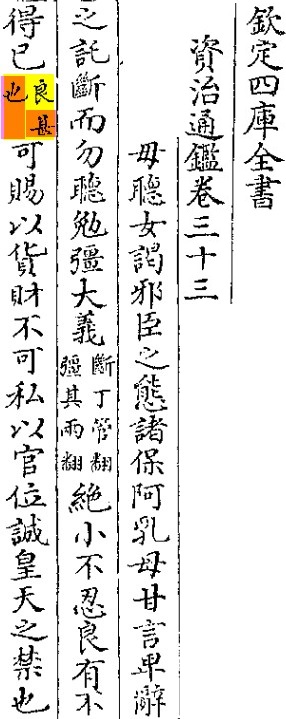 欽定四庫全書
資治通鑑卷三十三
毋聽女謁邪臣之態諸保阿乳母甘言卑辭
之託斷而勿聽勉彊大義斷丁管翻彊其兩翻絶小不忍良有不
得已良甚也可賜以貨財不可私以官位誠皇天之禁也